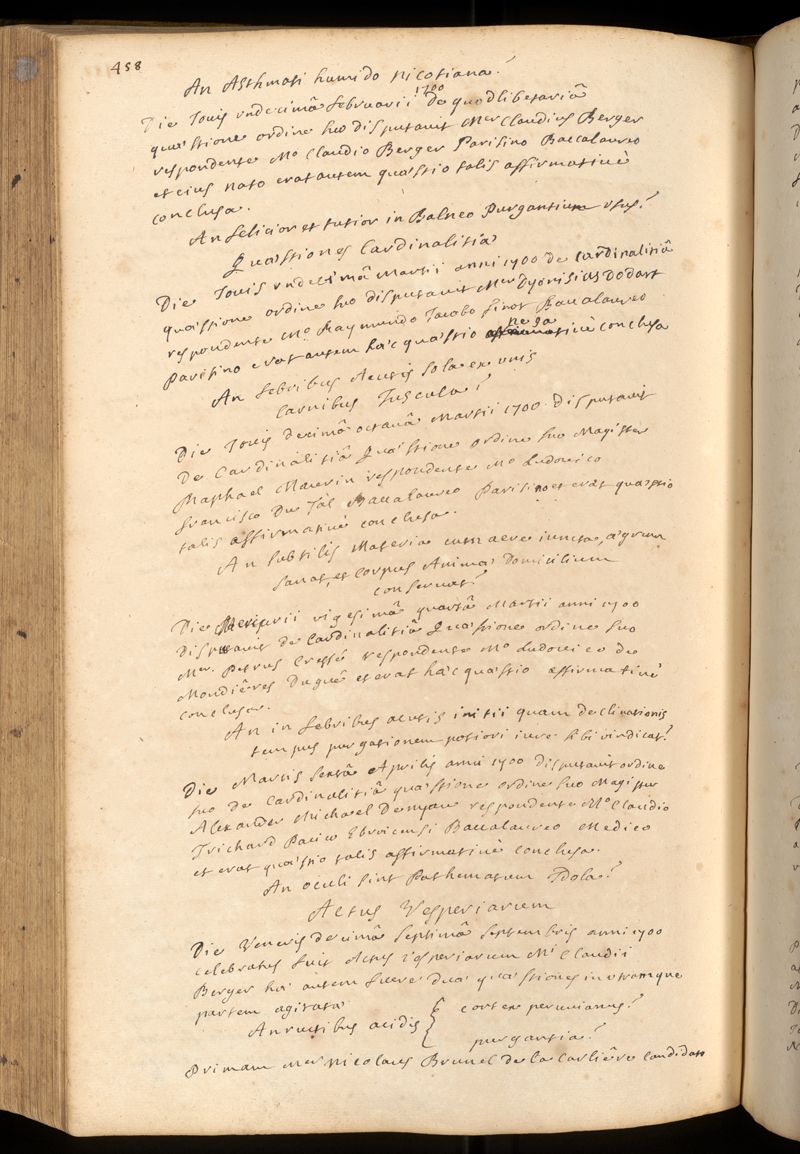 458
An Asthmati humido nicotiana?
Die Jovis undecimâ februarii 1700 de quodlibetariâ
quæstione ordine suo disputavit Mer Claudius Berger
respondente Mo Claudio Berger Parisino Baccalaureo
et eius nato erat autem quæstio talis affirmativè
conclusa.
An felicior et tutior in Balneo Purgantium usus?
Quæstiones Cardinalitiæ
Die Jovis undecimâ Martii anni 1700 de cardinalitiâ
quæstione ordine suo disputavit Mer Dyonisius Dodart
respondente Mo Raymundo Jacobo finot Baccalaureo
Parisino erat autem hæc quæstio negativè conclusa
An febribus Acutis sola ex unis
carnibus Juscula?
Die Jovis decimâ octavâ Martii 1700 disputavit
De Cardinalitiâ Quæstione ordine suo Magister
Raphael Mauvin respondente Mo Ludovico
francisco Du Tal Baccalaureo Parisino et erat quæstio
talis affirmativè conclusa.
An subtilis Materia cum aere iuncta, ægrum
sanat, et corpus Animæ Domicilium
conservat?
Die Mercurii vigesimâ quartâ Martii anni 1700
Disputavit de Cardinalitiâ Quæstione ordine suo
Mer. Petrus Cressé respondente Mo Ludovico de
Mondiêres Dugué et erat hæc quæstio affirmativè
conclusa.
An in febribus acutis initii quam declinationis
tempus purgationem potiori iure sibi vindicat?
Die Martis sextâ Aprilis anni 1700 disputavit ordine
suo de Cardinalitiâ quæstione ordine suo Magister
Alexander Michael Denyau respondente Mo Claudio
Trichard Ebroicensi Baccalaureo Medico
et erat quæstio talis affirmativè conclusa.
An oculi sint Pathematum Idola?
Actus Vesperiarum
Die Veneris decimâ septimâ septembris anni 1700
celebratus fuit Actus vesperiarum Mi Claudii
Berger hæ autem fuere duæ quæstiones in utramque
partem agitatæ
An ructibus acidis { cortex peruvianus?
purgantia?
Primam Mer Nicolaus Brunel de la Carliêre candidato